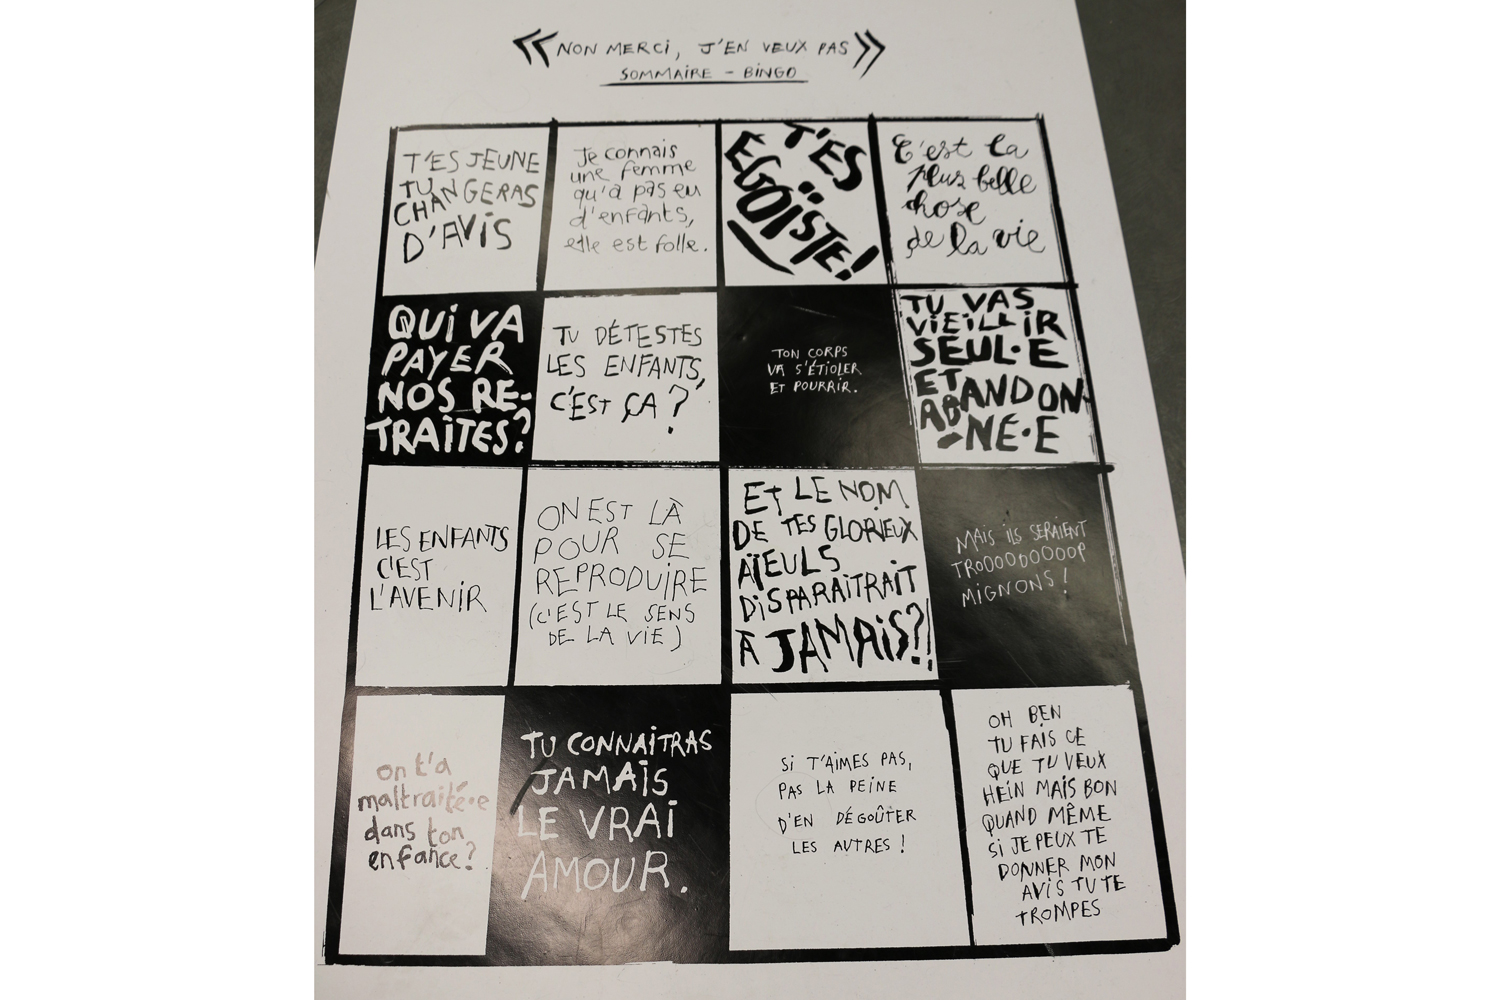 « NON MERCI, J'EN VEUX PAS »
SOMMAIRE - BINGO
T'ES JEUNE
TU
CHANGERAS
D'AVIS
Je connais
une femme
qu'a pas eu
d'enfants,
elle est folle.
T'ES
ÉGOÏSTE!
C'est la
plus belle
chose
de la vie
QUI VA
PAYER
NOS RE-
TRAITES?
TU DÉTESTES
LES ENFANTS,
C'EST ÇA ?
TON CORPS
VA S'ÉTIOLER
ET POURRIR.
TU VAS
VIEILLIR
SEUL·E
ET
ABANDON-
-NÉ·E
LES ENFANTS
C'EST
L'AVENIR
ON EST LÀ
POUR SE
REPRODUIRE
(C'EST LE SENS
DE LA VIE)
ET LE NOM
DE TES GLORIEUX
AÏEULS
DISPARAITRAIT
À JAMAIS?!
MAIS ILS SERAIENT
TROOOOOOOOP
MIGNONS !
on t'a
maltraité·e
dans ton
enfance?
TU CONNAITRAS
JAMAIS
LE VRAI
AMOUR.
SI T'AIMES PAS,
PAS LA PEINE
D'EN DÉGOÛTER
LES AUTRES !
OH BEN
TU FAIS CE
QUE TU VEUX
HEIN MAIS BON
QUAND MÊME
SI JE PEUX TE
DONNER MON
AVIS TU TE
TROMPES